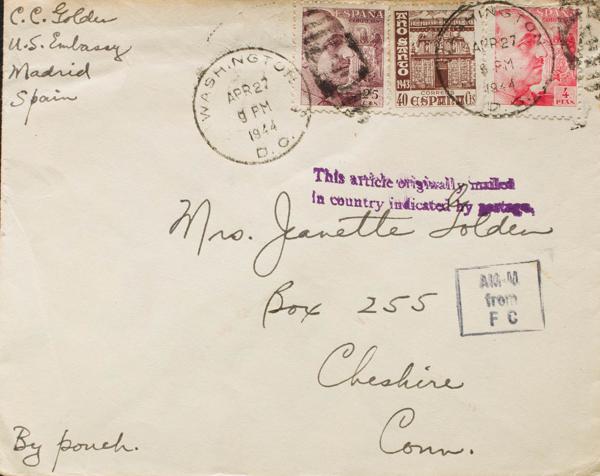 C.C. Golden
U.S. Embassy
Madrid
Spain
WASHINGTON
APR 27
9 PM
1944
D.C.
ESPAÑA
CORREOS
25
CTS
AÑO SANTO
1943
CORREOS
40 ESPAÑA Cts
ESPAÑA
4
PTAS
APR 27
PM
1944
D
This article originally mailed
in country indicated by postage.
Mrs. Jeanette Golden
Box 255
Cheshire
Conn.
AM-M
from
F C
By pouch.